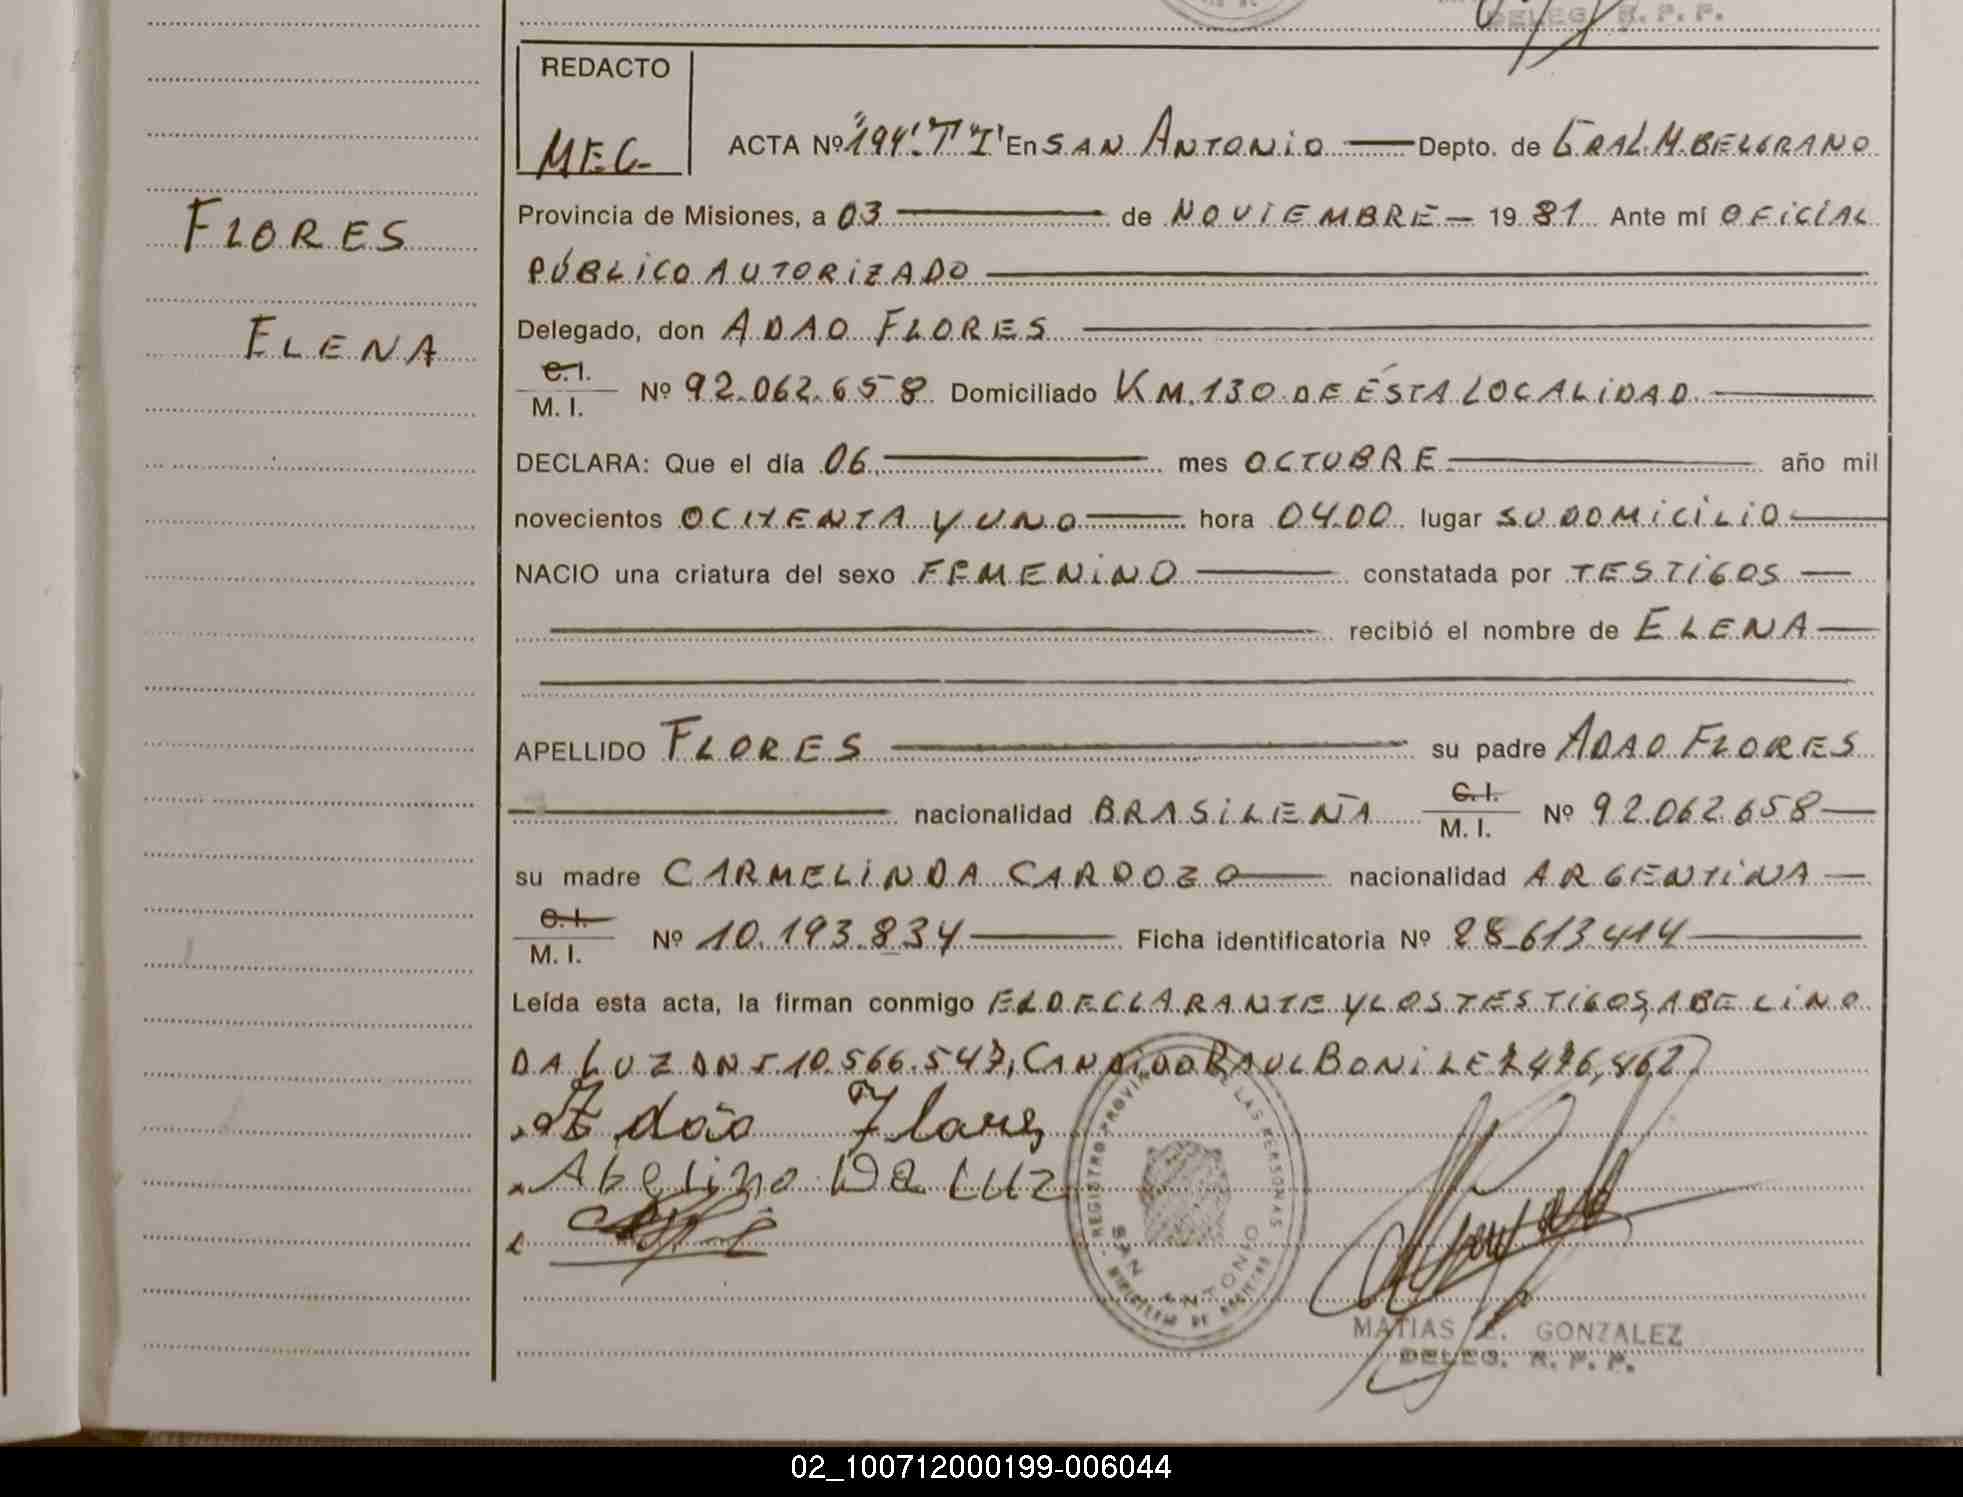 DELEG. R. P. P.
REDACTO
MEG-
ACTA Nº "194" "T I" En SAN ANTONIO Depto. de GRAL.M.BELGRANO
Provincia de Misiones, a 03 de NOVIEMBRE 1981 Ante mí OFICIAL
PÚBLICO AUTORIZADO
Delegado, don ADAO FLORES
C. I.
M. I. Nº 92.062.658 Domiciliado KM.130 DE ÉSTA LOCALIDAD
DECLARA: Que el día 06 mes OCTUBRE año mil
novecientos OCHENTA Y UNO hora 04.00 lugar SU DOMICILIO
NACIO una criatura del sexo FEMENINO constatada por TESTIGOS
recibió el nombre de ELENA
APELLIDO FLORES su padre ADAO FLORES
nacionalidad BRASILEÑA C. I. M. I. Nº 92.062.658
su madre CARMELINDA CARDOZO nacionalidad ARGENTINA
C. I.
M. I. Nº 10.193.834 Ficha identificatoria Nº 28.613.414
Leída esta acta, la firman conmigo EL DECLARANTE Y LOS TESTIGOS, ABELINO
DA LUZ DNI 10.566.547, CANDIDO RAUL BONI LE
Adão Flores
Abelino Da Luz
REGISTRO PROVINCIAL DE LAS PERSONAS
SAN ANTONIO
MATIAS E. GONZALEZ
DELEG. R. P. P.
FLORES
ELENA
02_100712000199-006044